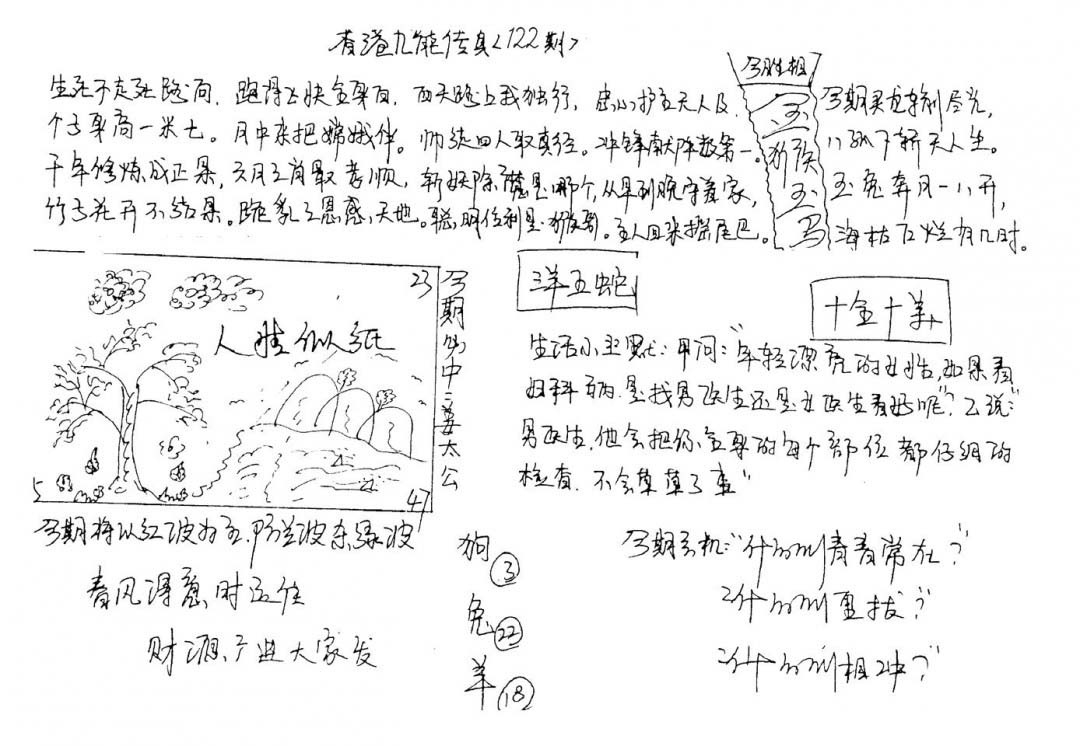 香港九龍传真〈122期〉
生死不走死路向，跑得飞快全身白，西天路上我独行，忠心护主天人及，
个子身高一米七。月中来把嫦娥伴。师徒四人取真经。冲锋献阵数第一。
千年修炼成正果，三月三肖最孝顺，斩妖除魔是哪个，从早到晚守着家，
竹子花开不结果。跪乳之恩感天地。聪明伶利是猴哥。主人回来摇尾巴。
今胜相
金
猴
玉
马
八孤下斩夭人生。
玉兔奔月一八开，
海枯石烂有几时。
23
人胜似纸
5
47
今期必中姜太公
洋五蛇
十全十美
生活小幽默：甲问："年轻漂亮的女性，如果看
妇科病是找男医生还是女医生看好呢"？乙说："
男医生，他会把你全身的每个部位都仔细的
检查，不会草草了事"
今期将以红波为主，防兰波杀绿波
春风得意时运佳
财源广进大家发
狗③
兔㉒
羊⑱
今期玄机："什么叫青春常在？"
"什么叫重拔？"
"什么叫相冲？"